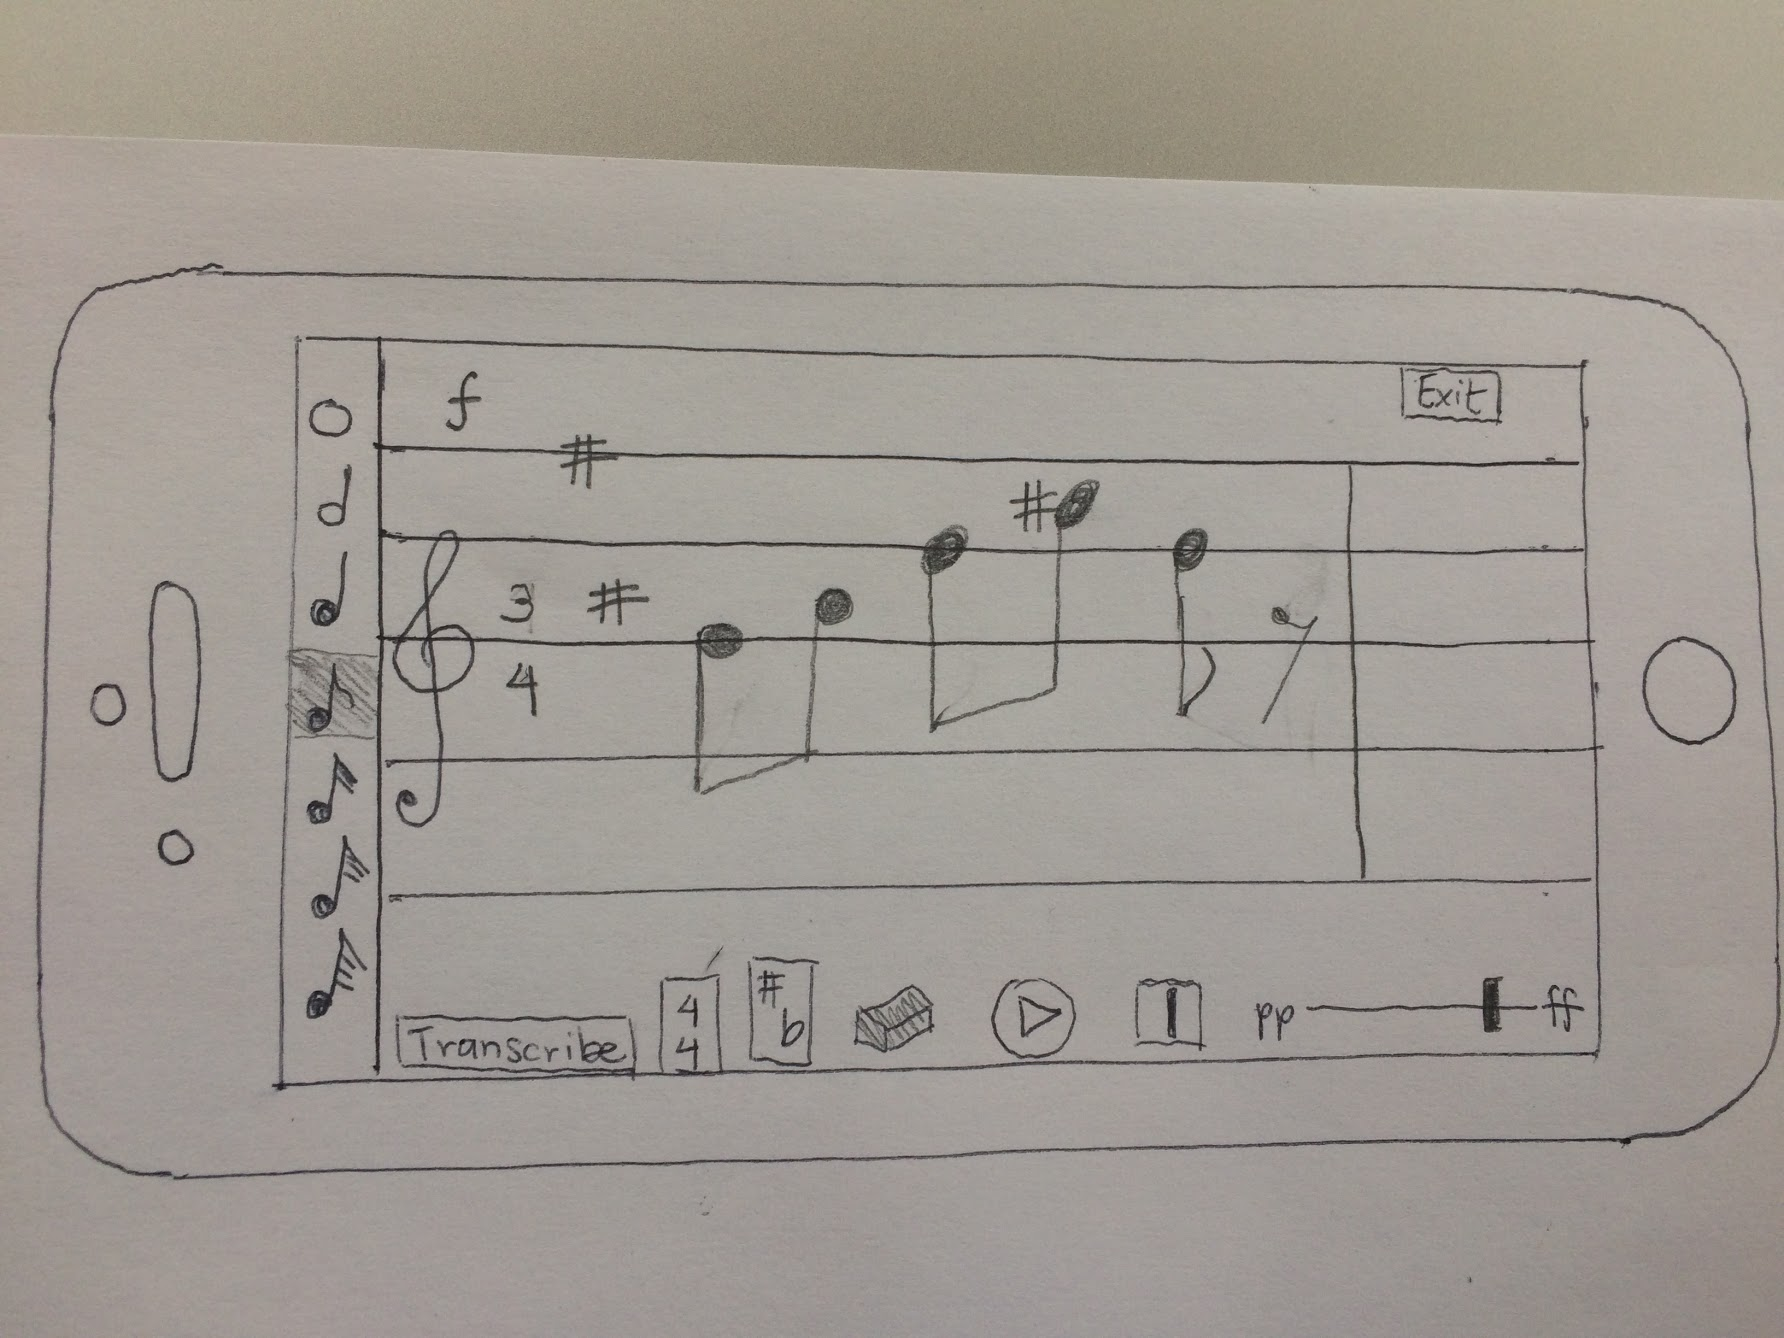 f
Exit
#
#
3
4
#
Transcribe
4
4
#
b
pp
ff